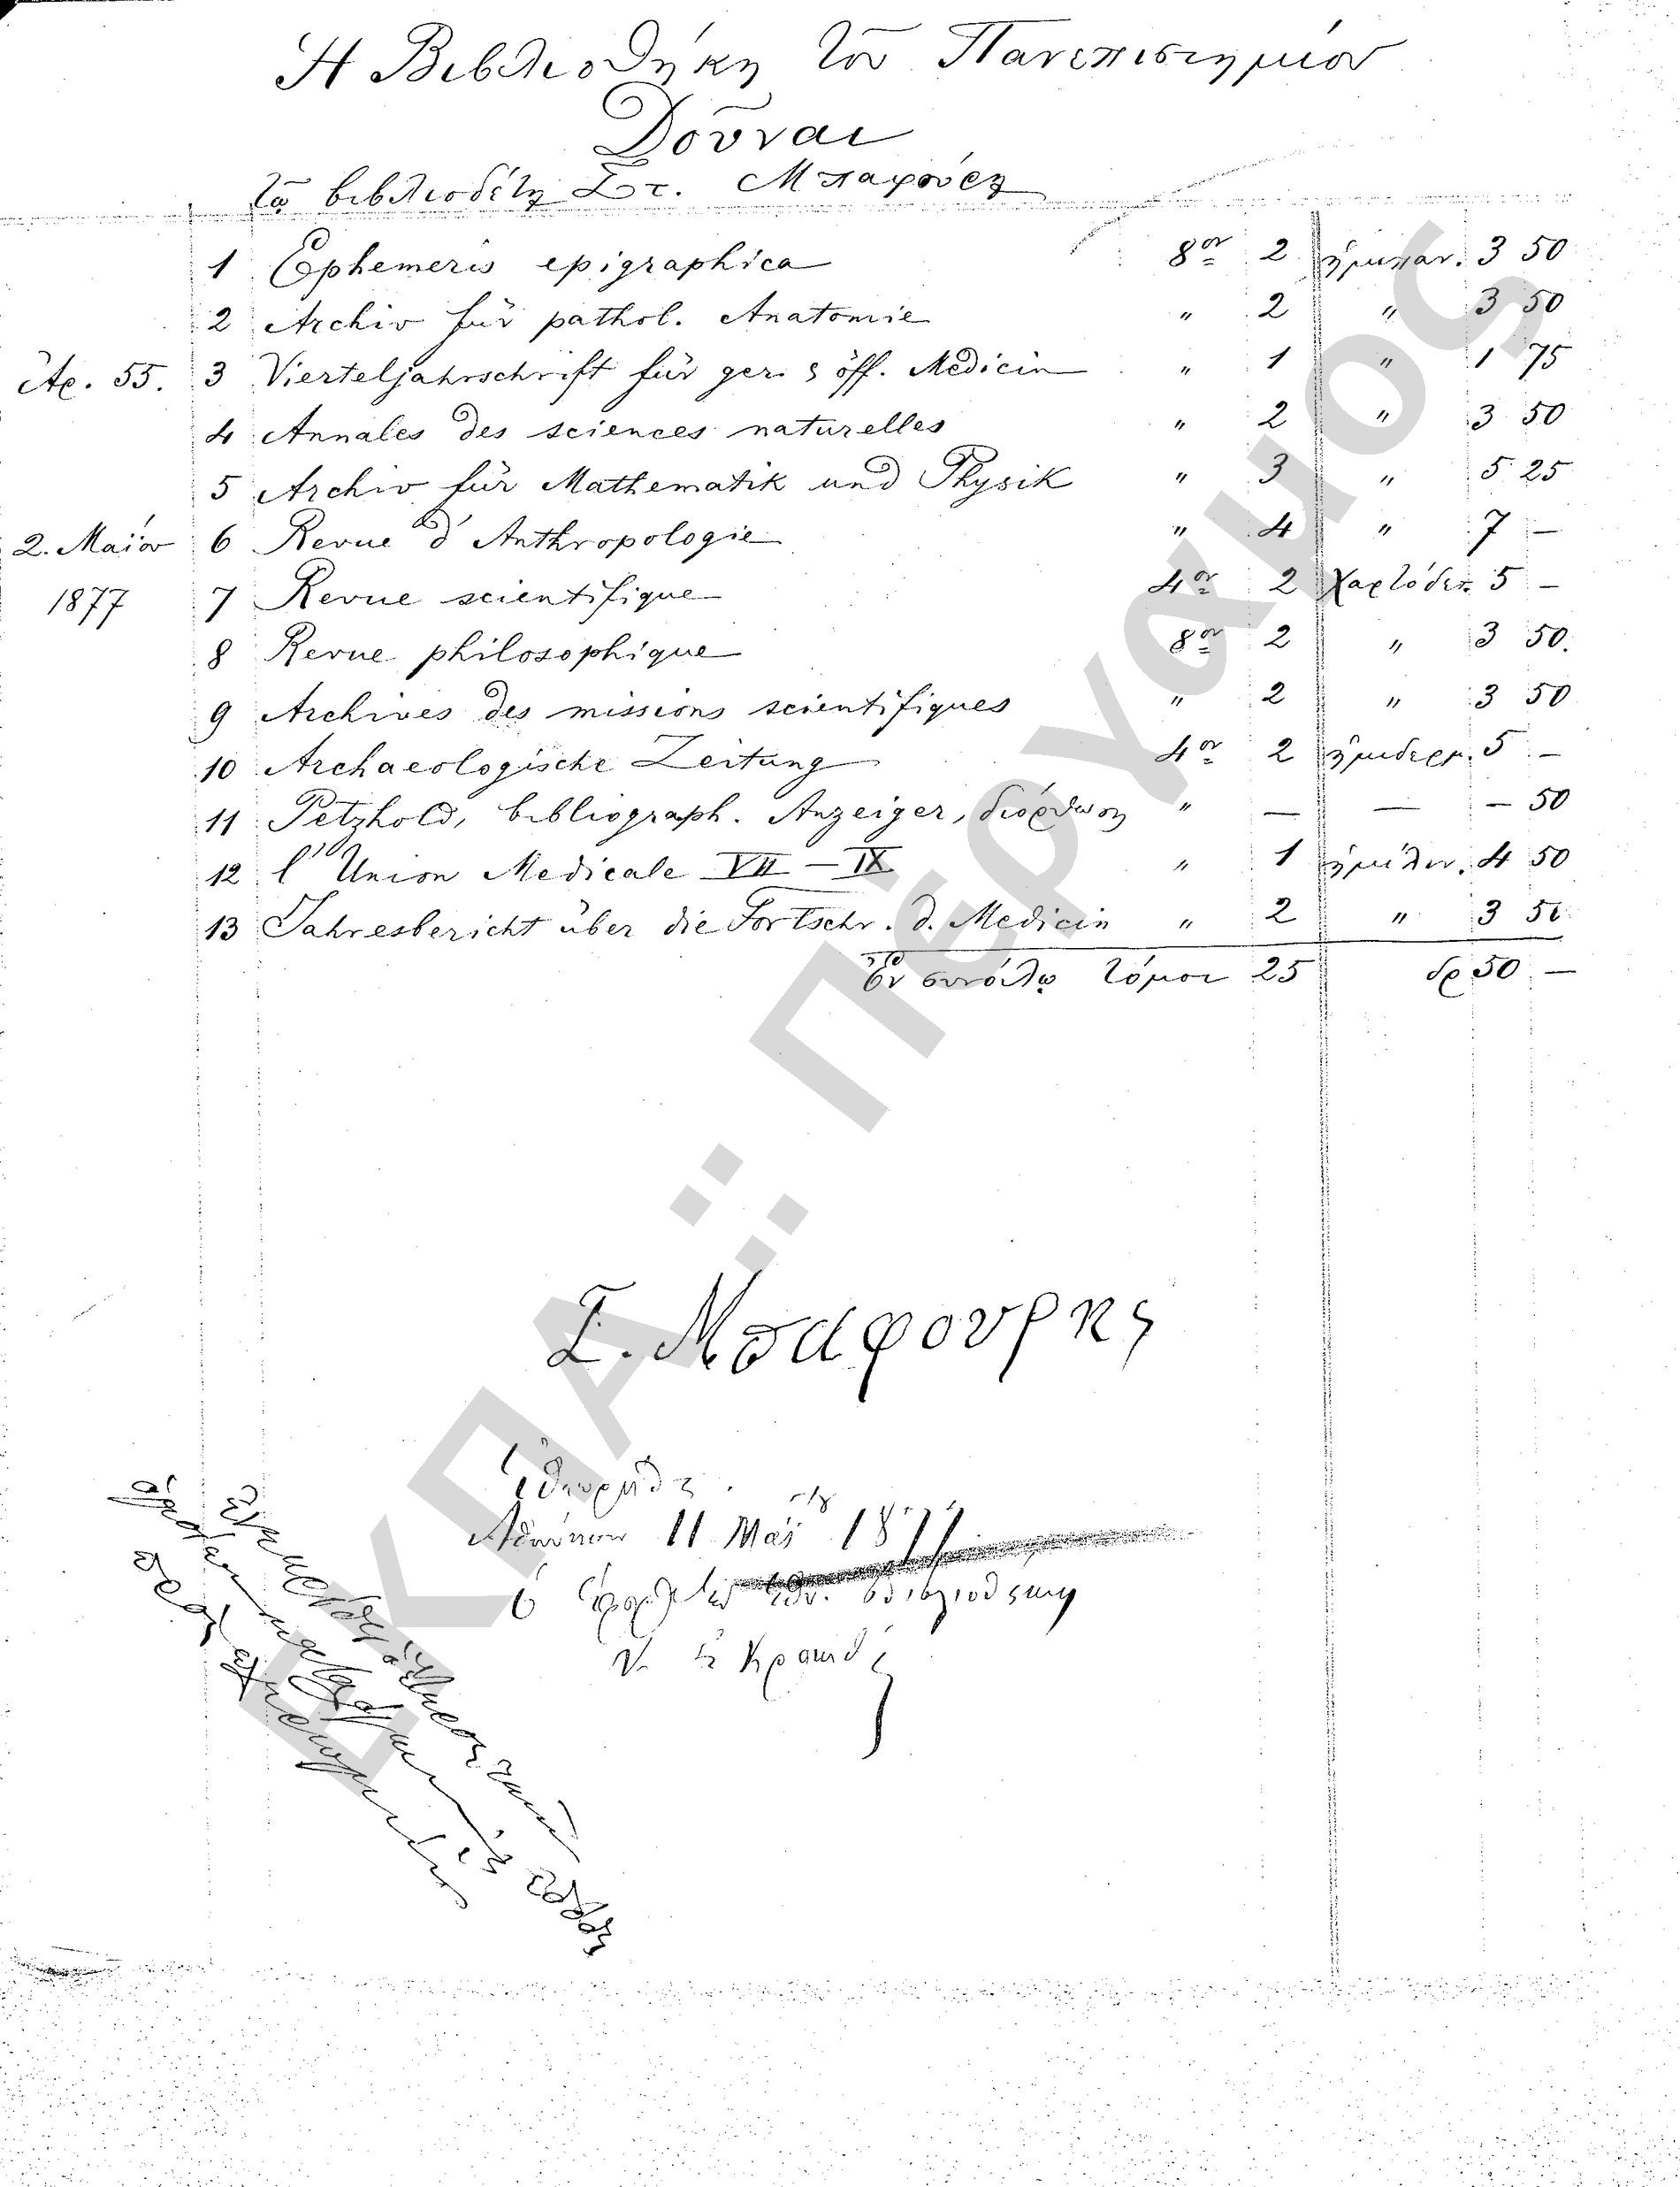 Ἡ Βιβλιοθήκη τοῦ Πανεπιστημίου
Δοῦναι
τῷ βιβλιοδέτῃ Στ. Μπαφούρῃ
1 Ephemeris epigraphica 8ον 2 ἡμιπαν. 3 50
2 Archiv für pathol. Anatomie " 2 " 3 50
Ἀρ. 55. 3 Vierteljahrschrift für ger. & öff. Medicin " 1 " 1 75
4 Annales des sciences naturelles " 2 " 3 50
5 Archiv für Mathematik und Physik " 3 " 5 25
2. Μαΐου 6 Revue d'Anthropologie " 4 " 7 —
1877 7 Revue scientifique 4ον 2 χαρτόδετ. 5 —
8 Revue philosophique 8ον 2 " 3 50.
9 Archives des missions scientifiques " 2 " 3 50
10 Archaeologische Zeitung 4ον 2 ἡμιδερμ. 5 —
11 Petzhold, bibliograph. Anzeiger, διόρθωση " — — — 50
12 l'Union Medicale VII — IX " 1 ἡμίλιν. 4 50
13 Jahresbericht über die Fortschr. d. Medicin " 2 " 3 50
Ἐν συνόλῳ τόμοι 25 δρ 50 —
Σ. Μπαφουρης
Ἐθεωρήθη.
Ἀθήνησι 11 Μαΐ 1877
Ὁ ἔφορ τῆς ἐθν. βιβλιοθήκης
ΕΚΠΑ:: Πέργαμος